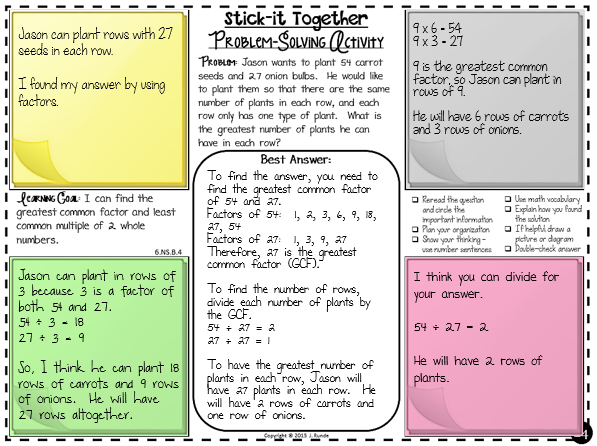 Stick-it Together
Problem-Solving Activity
Jason can plant rows with 27
seeds in each row.
I found my answer by using
factors.
Problem: Jason wants to plant 54 carrot
seeds and 27 onion bulbs. He would like
to plant them so that there are the same
number of plants in each row, and each
row only has one type of plant. What is
the greatest number of plants he can
have in each row?
9 x 6 - 54
9 x 3 - 27
9 is the greatest common
factor, so Jason can plant in
rows of 9.
He will have 6 rows of carrots
and 3 rows of onions.
Learning Goal: I can find the
greatest common factor and least
common multiple of 2 whole
numbers.
6.NS.B.4
Best Answer:
To find the answer, you need to
find the greatest common factor
of 54 and 27.
Factors of 54: 1, 2, 3, 6, 9, 18,
27, 54
Factors of 27: 1, 3, 9, 27
Therefore, 27 is the greatest
common factor (GCF).
To find the number of rows,
divide each number of plants by
the GCF.
54 ÷ 27 = 2
27 ÷ 27 = 1
To have the greatest number of
plants in each row, Jason will
have 27 plants in each row. He
will have 2 rows of carrots and
one row of onions.
Reread the question
and circle the
important information
Plan your organization
Show your thinking -
use number sentences
Use math vocabulary
Explain how you found
the solution
If helpful, draw a
picture or diagram
Double-check answer
Jason can plant in rows of
3 because 3 is a factor of
both 54 and 27.
54 ÷ 3 = 18
27 ÷ 3 = 9
So, I think he can plant 18
rows of carrots and 9 rows
of onions. He will have
27 rows altogether.
I think you can divide for
your answer.
54 ÷ 27 = 2
He will have 2 rows of
plants.
Copyright © 2015 J. Runde